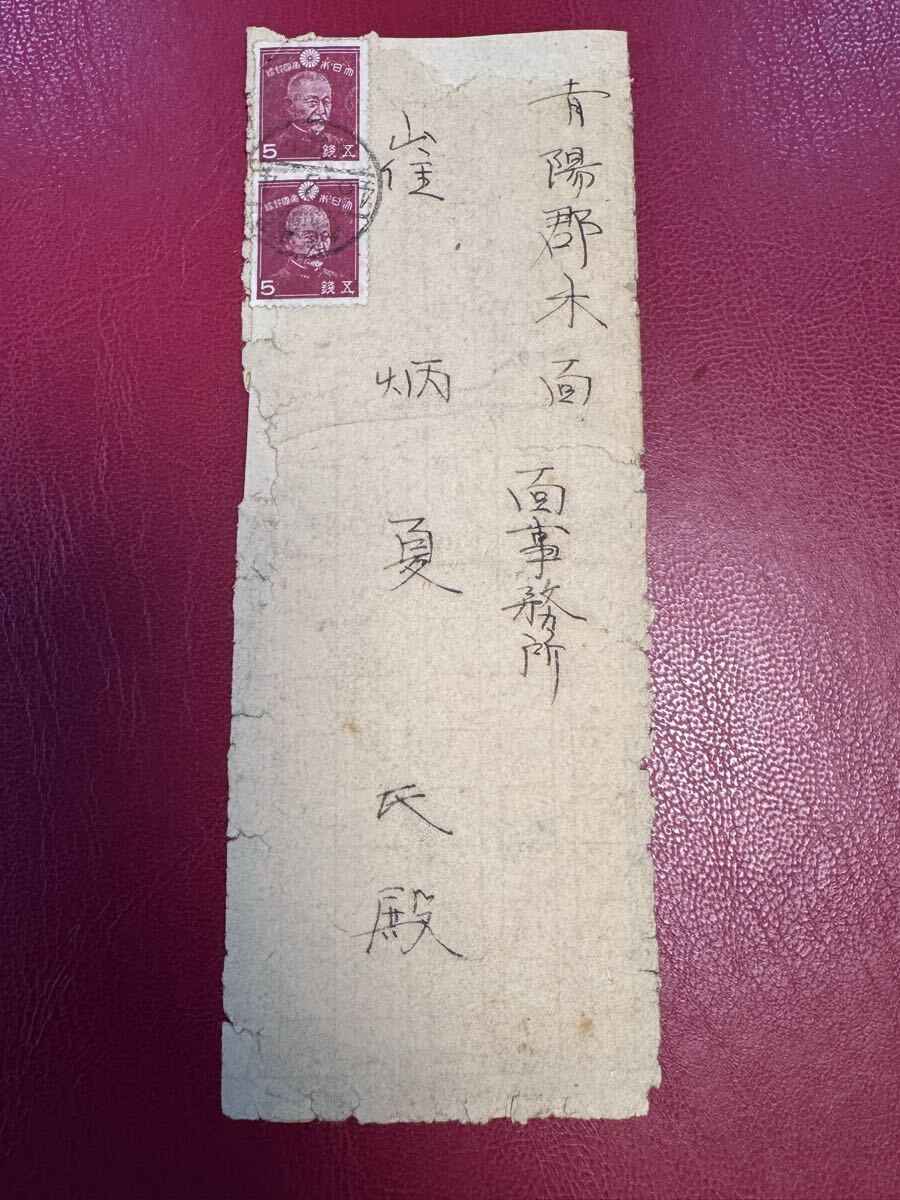 青陽郡木面
面事務所
山住炳夏氏殿
大日本帝國郵便
5 五錢
大日本帝國郵便
5 五錢